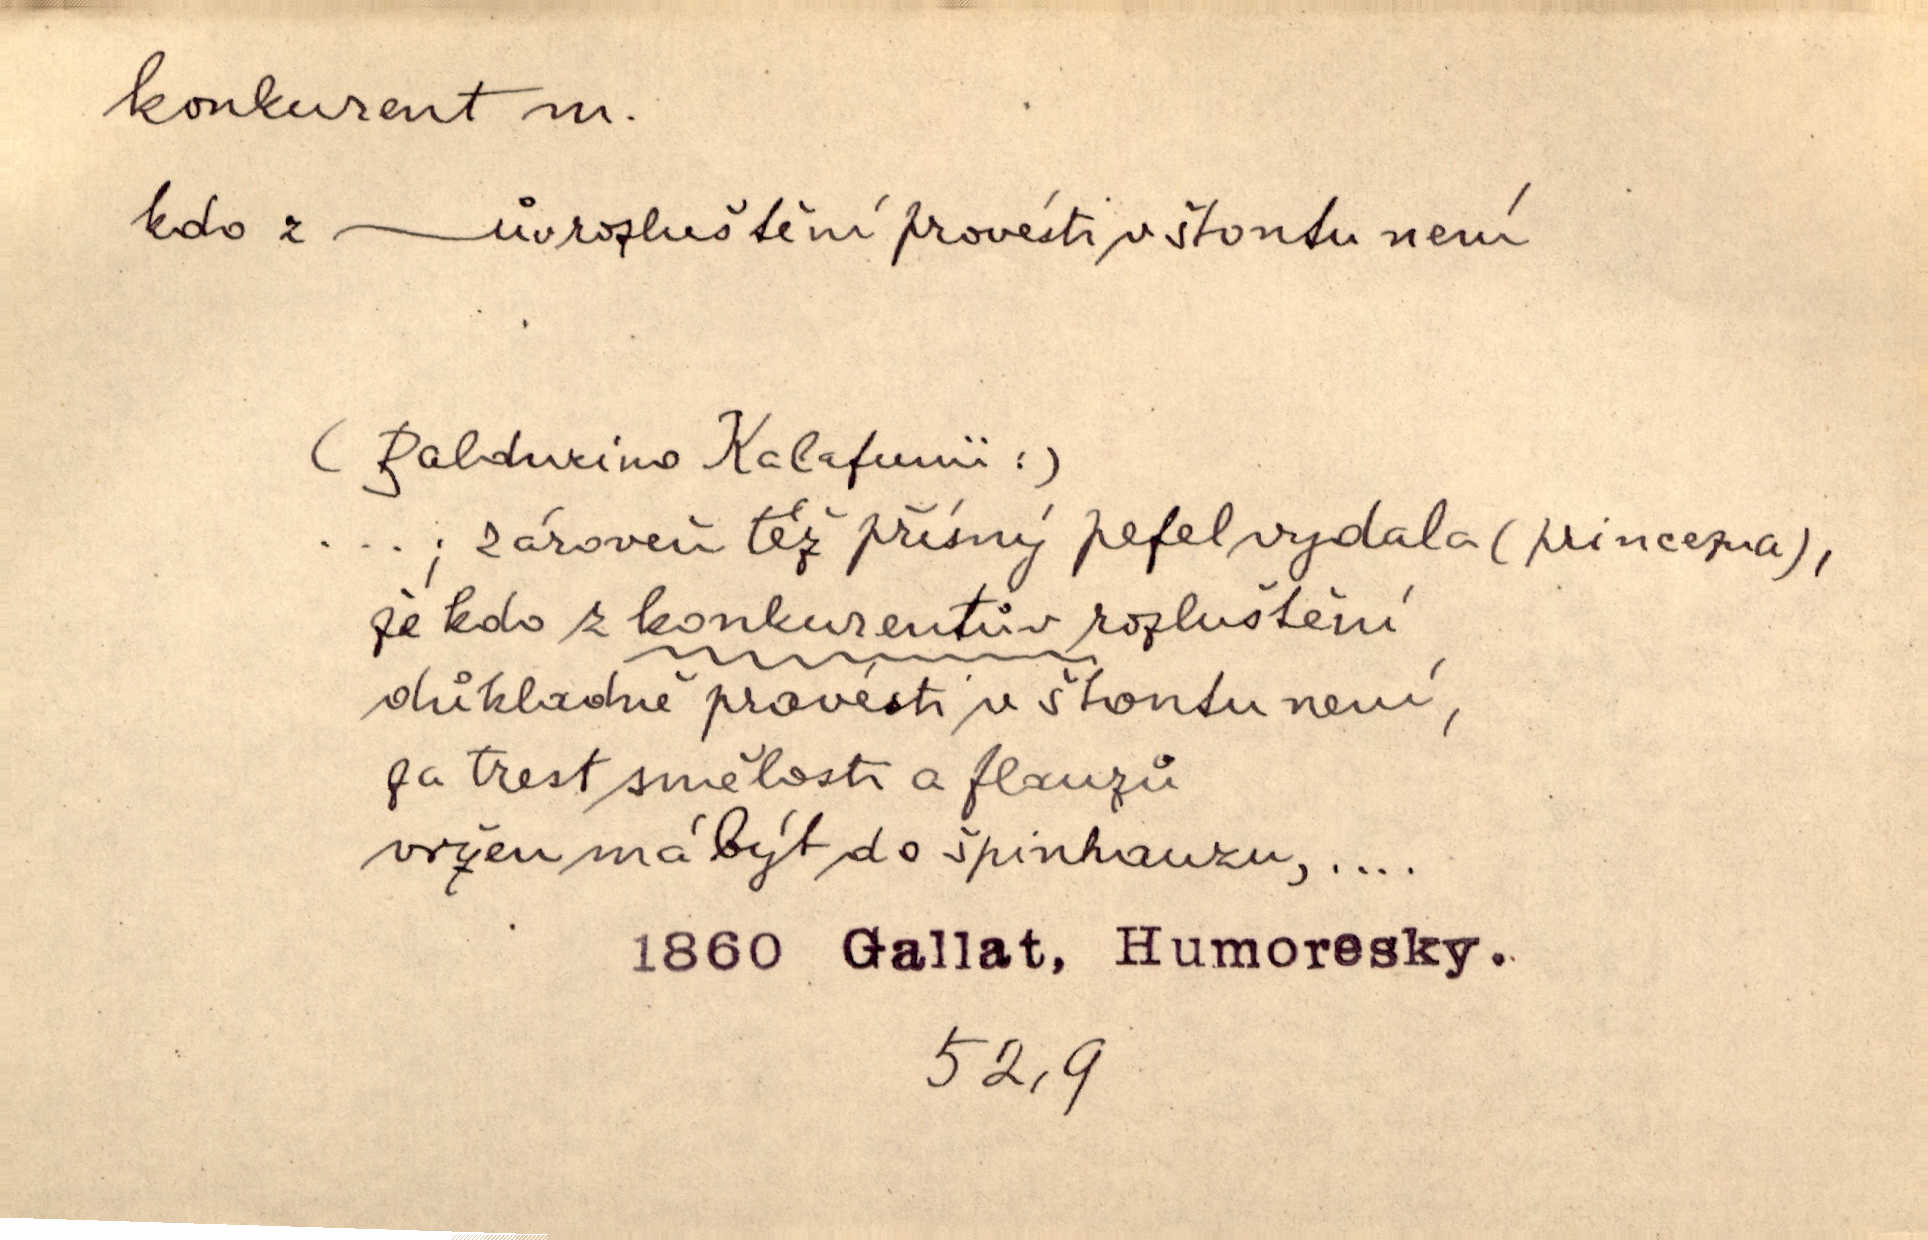 konkurent m.
kdo z — ův rozluštění provésti v štontu není
( Baldurino Kalafunii :)
...; zároveň též přísný pefel vydala (princezna),
že kdo z konkurentův rozluštění
důkladně provésti v štontu není,
za trest smělosti a flauzů
vržen má být do špinhauzu, ....
1860 Gallat, Humoresky.
52,9